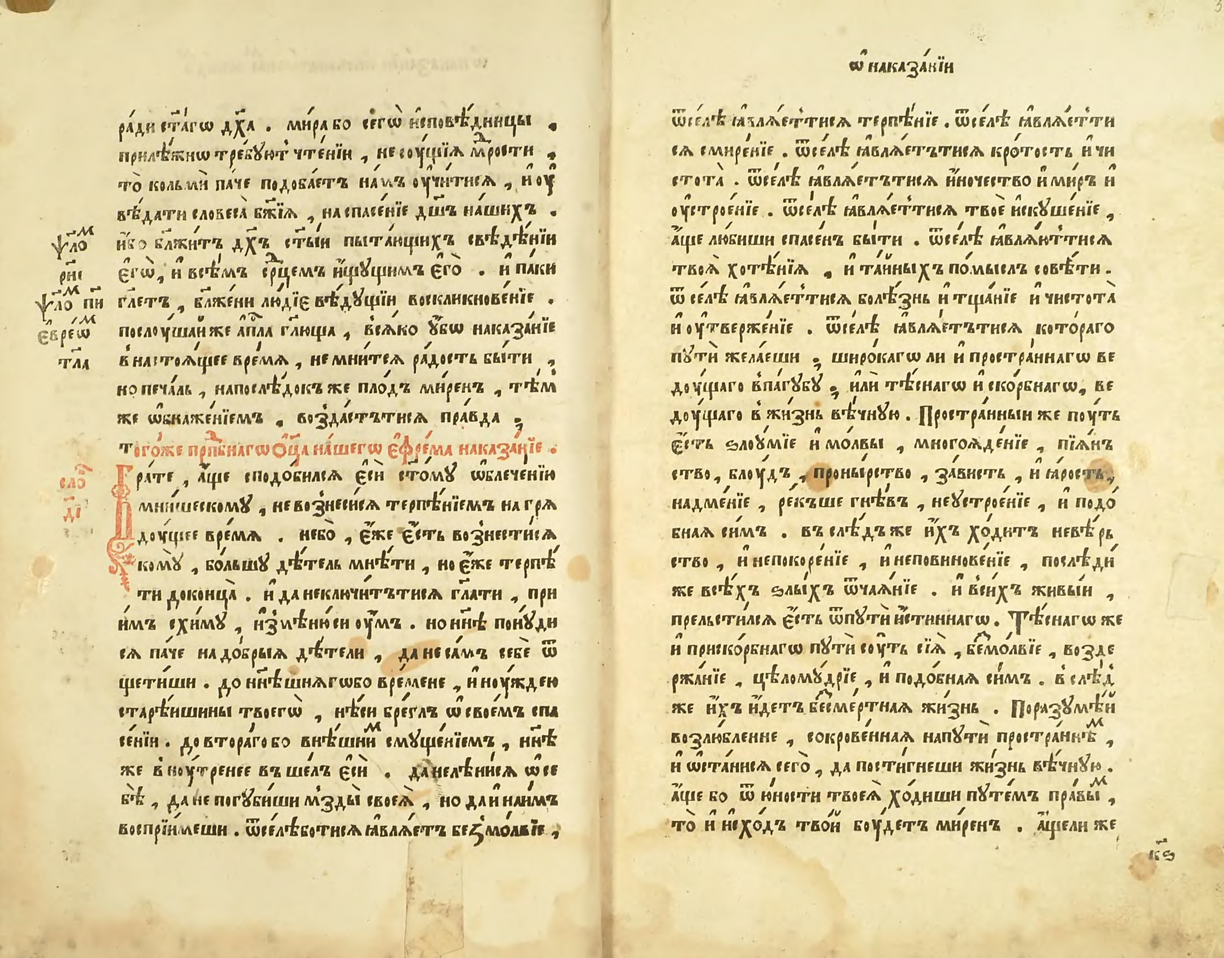 ра́ди ст҃а́гѡ дх҃а . мира бо сегѡ̀ и҆сповѣ́дницы .
прилѣ́жнѡ тре́буютъ чте́нїи , не сꙋ́щїѧ мр҃ости ,
то̀ кольмѝ па́че подоба́етъ на́мъ ᲂу҆чи́тисѧ , и҆ ᲂу҆
вѣ́дати словеса̀ бж҃їѧ , на спасе́нїе дш҃ъ на́шихъ .
ѱало́м
и҆́бо бл҃жи́тъ дх҃ъ ст҃ы́и пыта́ющихъ свѣдѣ́нїи
рн҃і
є҆гѡ̀ , и҆ всѣ́мъ срⷣцемъ и҆́щꙋщимъ є҆го̀ . и҆ па́ки
ѱало́м пи
гл҃етъ , бл҃же́ни лю́дїе вѣ́дꙋщїи воскликнове́нїе .
є҆вре́ѡм
послꙋ́шай же а҆пⷭ҇ла гл҃юща , всѧ́ко ᲂу҆́бѡ наказа́нїе
тл҃а
в настоѧ́щее вре́мѧ , не мни́тсѧ ра́дость бы́ти ,
но печа́ль , напослѣ́докъ же пло́дъ ми́ренъ , тѣ́м
же ѡ҆бнаже́нїемъ , возда́стътисѧ пра́вда ;
того́же прпⷣбнагѡ ѻ҆ц҃а̀ на́шегѡ є҆фре́ма наказа́нїе .
сло́
Бра́те , а҆́ще сподо́билсѧ є҆сѝ ст҃о́мꙋ ѡ҆блече́нїю
д҃і
мни́шескомꙋ , не вознеси́сѧ терпѣ́нїемъ на грѧ
дꙋ́щее вре́мѧ . не бо̀ , є҆́же є҆́сть вознести́сѧ
комꙋ̀ , бо́льшꙋ дѣ́тель мнѣ́ти , но є҆́же терпѣ́
ти доконца̀ . и҆ да не ключи́тътисѧ гл҃ати , при
и҆́мъ схи́мꙋ , и҆змѣни́ си ᲂу҆мъ . но нн҃ѣ понꙋ́ди
сѧ па́че на до́брыѧ дѣ́тели , да не са́мъ себѐ ѿ
щети́ши . до нн҃ѣшнѧгѡ бо вре́мене , и҆ нꙋ́ждею
старѣ́ишины твоегѡ̀ , нѣ́си бре́глъ ѡ҆ своемъ спа
се́нїи . до второ́го бо внѣ́шним смꙋще́нїемъ , нн҃ѣ
же в нꙋ́тренее въше́лъ є҆сѝ . да не лѣни́сѧ ѡ҆ се
бѣ̀ , да не погꙋби́ши мзды̀ своеѧ̀ , но да и҆ наи́мъ
воспрїи́меши . ѿсе́лѣ бо ти сѧ ꙗ҆влѧ́етъ безмо́лвїе ,
ѡ҆ наказа́нїи
ѿсе́лѣ ꙗ҆влѧ́еттисѧ терпѣ́нїе . ѿсе́лѣ ꙗ҆влѧ́етти
сѧ смире́нїе . ѿсе́лѣ ꙗ҆влѧ́етътисѧ кро́тость и҆ чи
стота̀ . ѿсе́лѣ ꙗ҆влѧ́етътисѧ и҆́ночество и҆ ми́ръ и҆
ᲂу҆строе́нїе . ѿсе́лѣ ꙗ҆влѧ́еттисѧ твоѐ и҆скꙋше́нїе ,
а҆́ще лю́биши спасе́нъ бы́ти . ѿсе́лѣ ꙗ҆влѧ́юттисѧ
твоѧ̀ хотѣ́нїѧ , и҆ та́йныхъ по́мыслъ совѣ́ти .
ѿ се́лѣ ꙗ҆влѧ́еттисѧ болѣ́знь и҆ тща́нїе и҆ чистота̀
и҆ ᲂу҆тверже́нїе . ѿсе́лѣ ꙗ҆влѧ́етътисѧ кото́раго
пꙋтѝ жела́еши ; широ́кагѡ ли и҆ простра́ннагѡ ве
дꙋ́щаго впа́гꙋбꙋ ; и҆лѝ тѣ́снагѡ и҆ ско́рбнагѡ , ве
дꙋ́щаго в жи́знь вѣ́чнꙋю . Простра́нныи же пꙋ́ть
є҆́сть ѕлоꙋ́мїе и҆ мо́лвы , многоѧде́нїе , пїѧ́нъ
ство , блꙋ́дъ , проны́рство , за́висть , и҆ ꙗ҆́рость ,
надме́нїе , ре́къше гнѣ́въ , неꙋстрое́нїе , и҆ подо́
бная си́мъ . въ слѣ́дъ же и҆́хъ хо́дитъ невѣ́рь
ство , и҆ непокоре́нїе , и҆ неповинове́нїе , послѣ́ди
же всѣ́хъ ѕлы́хъ ѿча́ѧнїе . и҆ в си́хъ живы́и ,
прельсти́лсѧ є҆́сть ѿ пꙋтѝ и҆́стиннагѡ . Тѣ́снагѡ же
и҆ приско́рбнагѡ пꙋтѝ сꙋ́ть сїѧ̀ , безмо́лвїе , возде
ржа́нїе , цѣломꙋ́дрїе , и҆ подо́бная си́мъ . в слѣ́д
же и҆́хъ и҆́детъ безсме́ртная жи́знь . Поразꙋмѣ́й
возлю́бленне , сокрове́нная на пꙋтѝ простра́ннѣм ,
и҆ ѡ҆ста́нисѧ сегѡ̀ , да пости́гнеши жи́знь вѣ́чнꙋю .
а҆́ще бо ѿ ю҆́ности твоеѧ̀ хо́диши пꙋте́мъ пра́вым ,
то̀ и҆ и҆схо́дъ тво́й бꙋ́детъ ми́ренъ . а҆́ще ли же
к҃ѕ